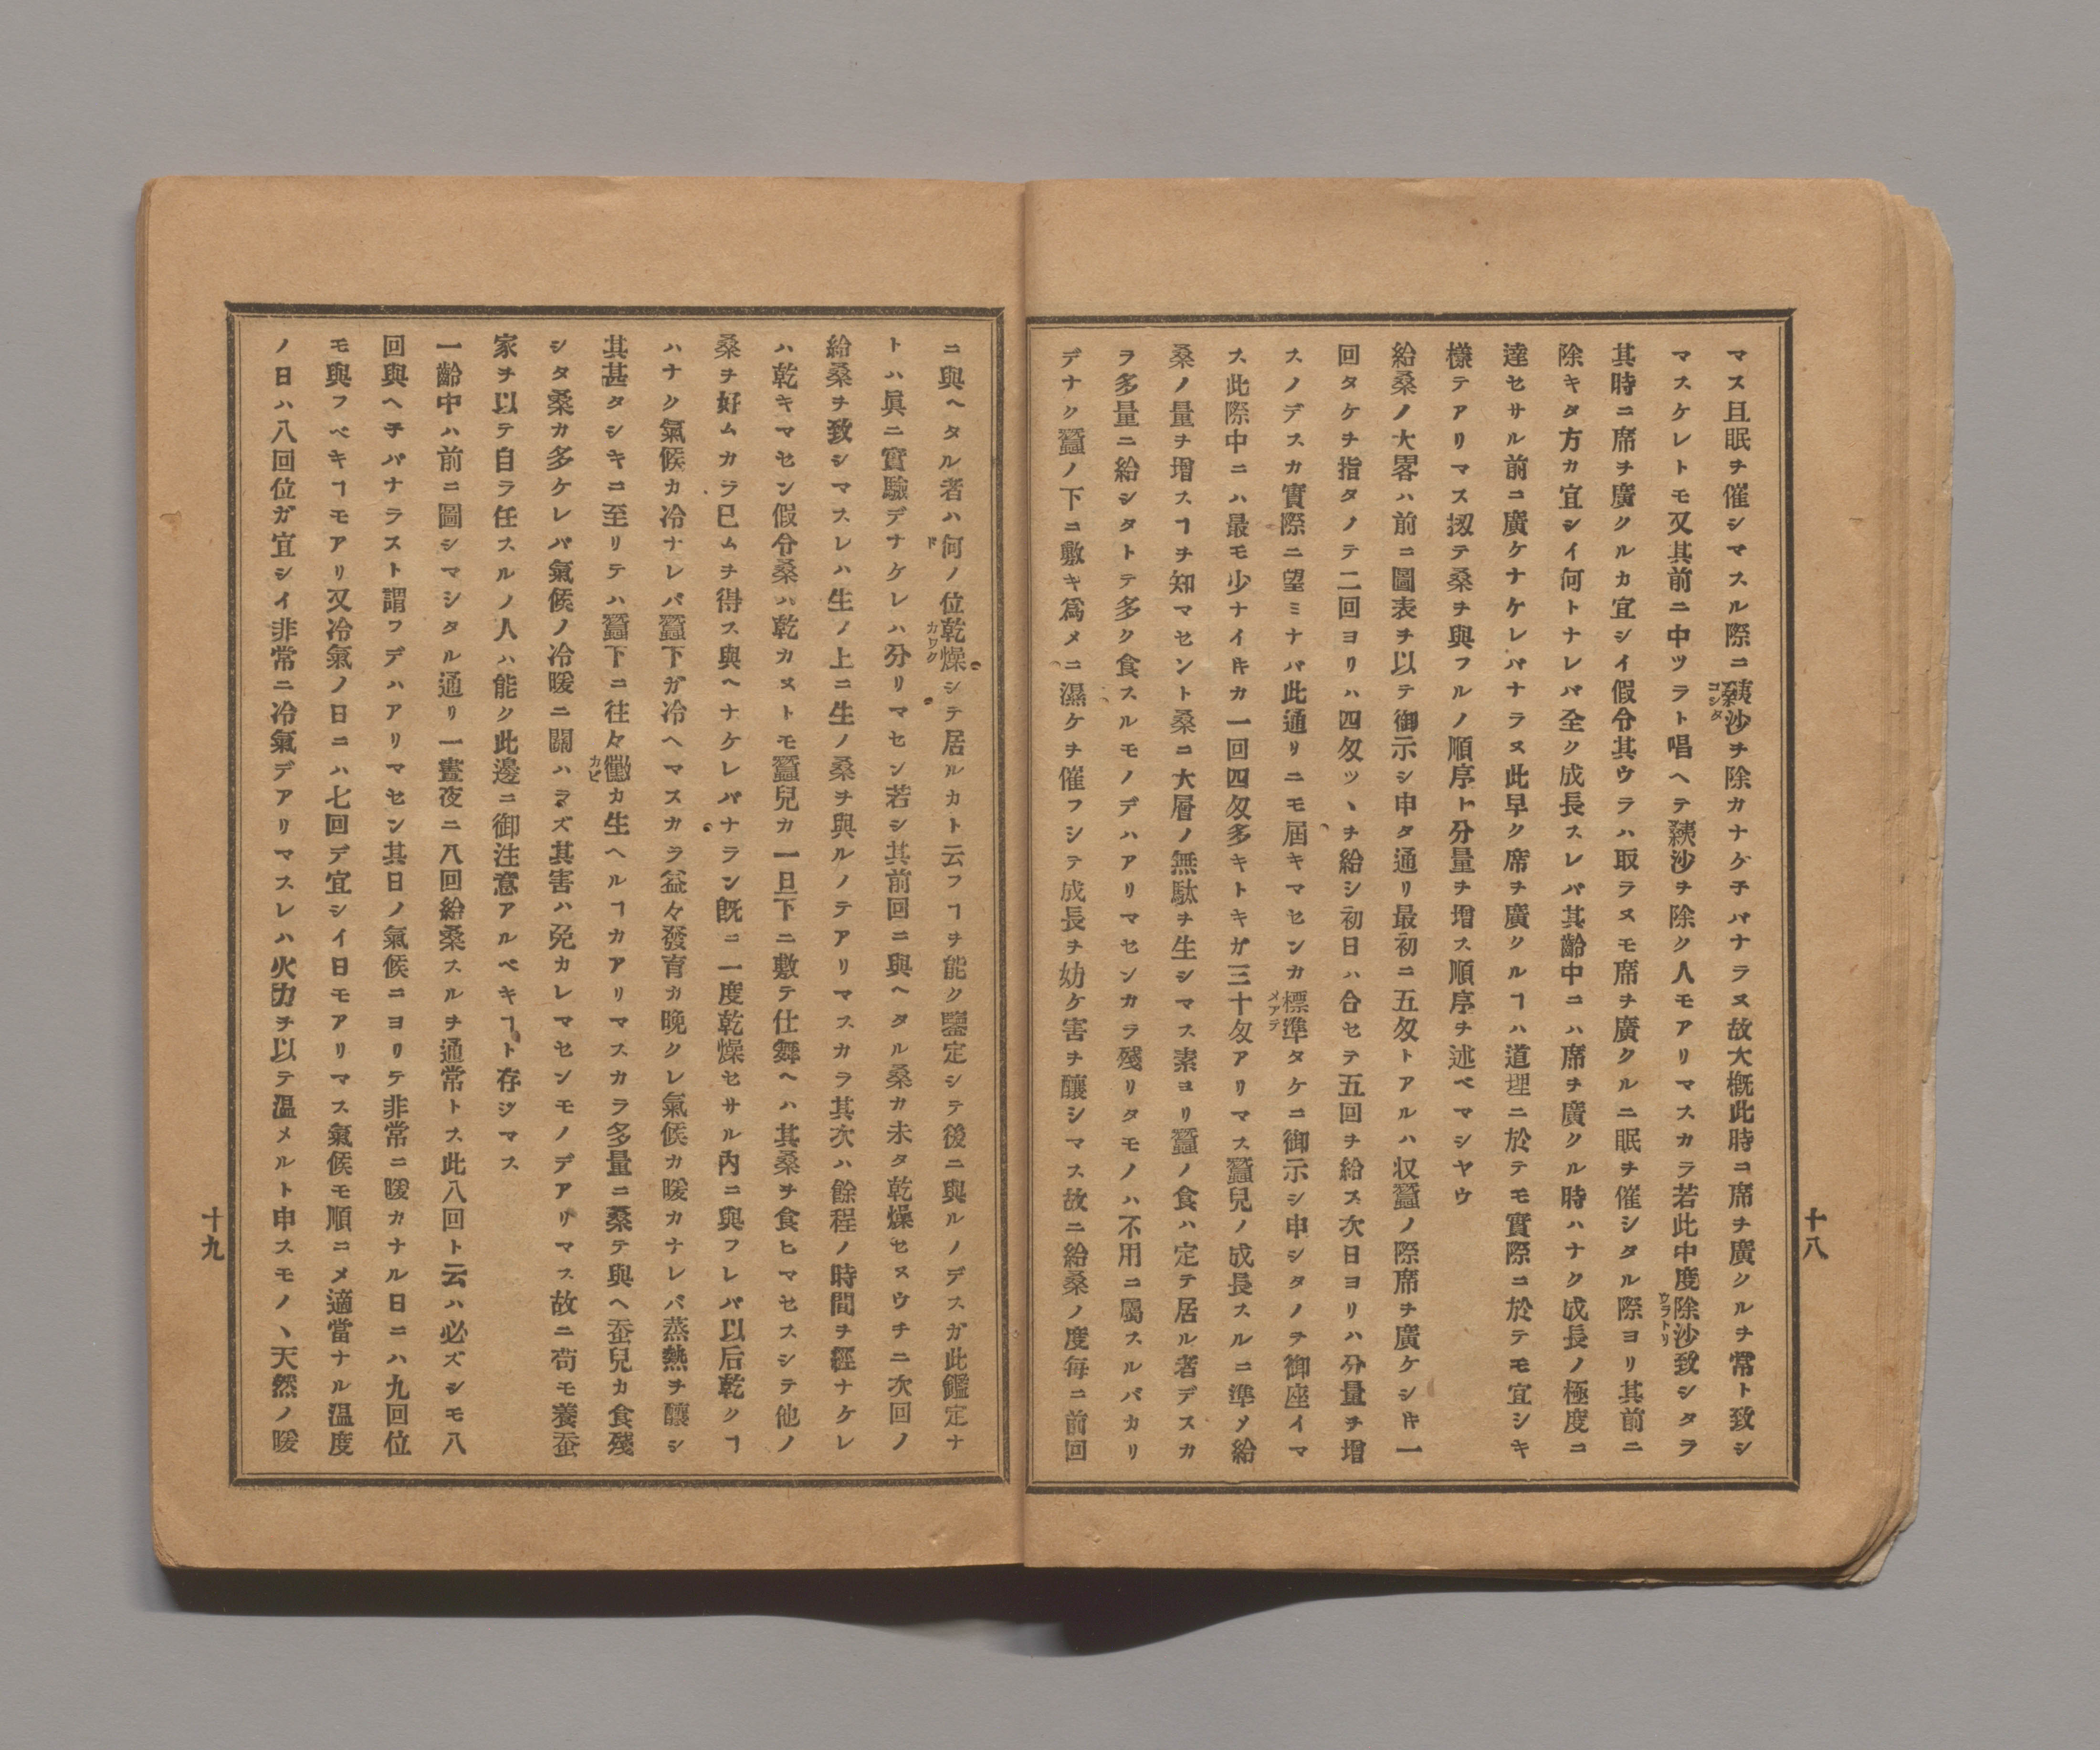 マス且眠ヲ催シマスル際ニ䴬沙ヲ除カナケ子バナラヌ故大概此時ニ席ヲ廣クルヲ常ト致シ
マスケレトモ又其前ニ中ヅラト唱ヘテ䴬沙ヲ除ク人モアリマスカラ若此中度除沙致シタラ
其時ニ席ヲ廣クルカ宜シイ假令其ウラハ取ラヌモ席ヲ廣クルニ眠ヲ催シタル際ヨリ其前ニ
除キタ方カ宜シイ何トナレバ全ク成長スレバ其齡中ニハ席ヲ廣クル時ハナク成長ノ極度ニ
達セサル前ニ廣ケナケレバナラヌ此早ク席ヲ廣クルヿハ道理ニ於テモ實際ニ於テモ宜シキ
樣テアリマス扨テ桑ヲ與フルノ順序ト分量ヲ增ス順序ヲ述ベマシヤウ
給桑ノ大畧ハ前ニ圖表ヲ以テ御示シ申タ通リ最初ニ五匁トアルハ収蠶ノ際席ヲ廣ケシキ一
回タケヲ指タノテ二回ヨリハ四匁ツヽヲ給シ初日ハ合セテ五回ヲ給ス次日ヨリハ分量ヲ增
スノデスカ實際ニ望ミナバ此通リニモ屆キマセンカ標準タケニ御示シ申シタノヲ御座イマ
ス此際中ニハ最モ少ナイキカ一回四匁多キトキガ三十匁アリマス蠶兒ノ成長スルニ準メ給
桑ノ量ヲ增スヿヲ知マセント桑ニ大層ノ無駄ヲ生シマス素ヨリ蠶ノ食ハ定テ居ル者デスカ
ラ多量ニ給シタトテ多ク食スルモノデハアリマセンカラ殘リタモノハ不用ニ屬スルバカリ
デナク蠶ノ下ニ敷キ爲メニ濕ケヲ催フシテ成長ヲ妨ケ害ヲ釀シマス故ニ給桑ノ度每ニ前回
十八
ニ與ヘタル者ハ何ノ位乾燥シテ居ルカト云フヿヲ能ク鑒定シテ後ニ與ルノデスガ此鑑定ナ
トハ眞ニ實驗デナケレハ分リマセン若シ其前回ニ與ヘタル桑カ未タ乾燥セヌウチニ次回ノ
給桑ヲ致シマスレハ生ノ上ニ生ノ桑ヲ與ルノテアリマスカラ其次ハ餘程ノ時間ヲ經ナケレ
ハ乾キマセン假令桑ハ乾カヌトモ蠶兒カ一旦下ニ敷テ仕舞ヘハ其桑ヲ食ヒマセスシテ他ノ
桑ヲ好ムカラ巳ムヲ得ス與ヘナケレバナラン旣ニ一度乾燥セサル內ニ與フレバ以后乾クヿ
ハナク氣候カ冷ナレバ蠶下ガ冷ヘマスカラ益々發育カ晩クレ氣候カ暖カナレバ蒸熱ヲ釀シ
其甚タシキニ至リテハ蠶下ニ往々黴カ生ヘルヿカアリマスカラ多量ニ桑テ與ヘ蚕兒カ食殘
シタ桑カ多ケレバ氣候ノ冷暖ニ關ハラズ其害ハ免カレマセンモノデアリマス故ニ苟モ養蚕
家ヲ以テ自ラ任スルノ人ハ能ク此邊ニ御注意アルベキヿト存ジマス
一齡中ハ前ニ圖シマシタル通リ一晝夜ニ八回給桑スルヲ通常トス此八回ト云ハ必ズシモ八
回與ヘ子バナラスト謂フデハアリマセン其日ノ氣候ニヨリテ非常ニ暖カナル日ニハ九回位
モ與フベキヿモアリ又冷氣ノ日ニハ七回デ宜シイ日モアリマス氣候モ順ニメ適當ナル温度
ノ日ハ八回位ガ宜シイ非常ニ冷氣デアリマスレハ火力ヲ以テ温メルト申スモノヽ天然ノ暖
十九